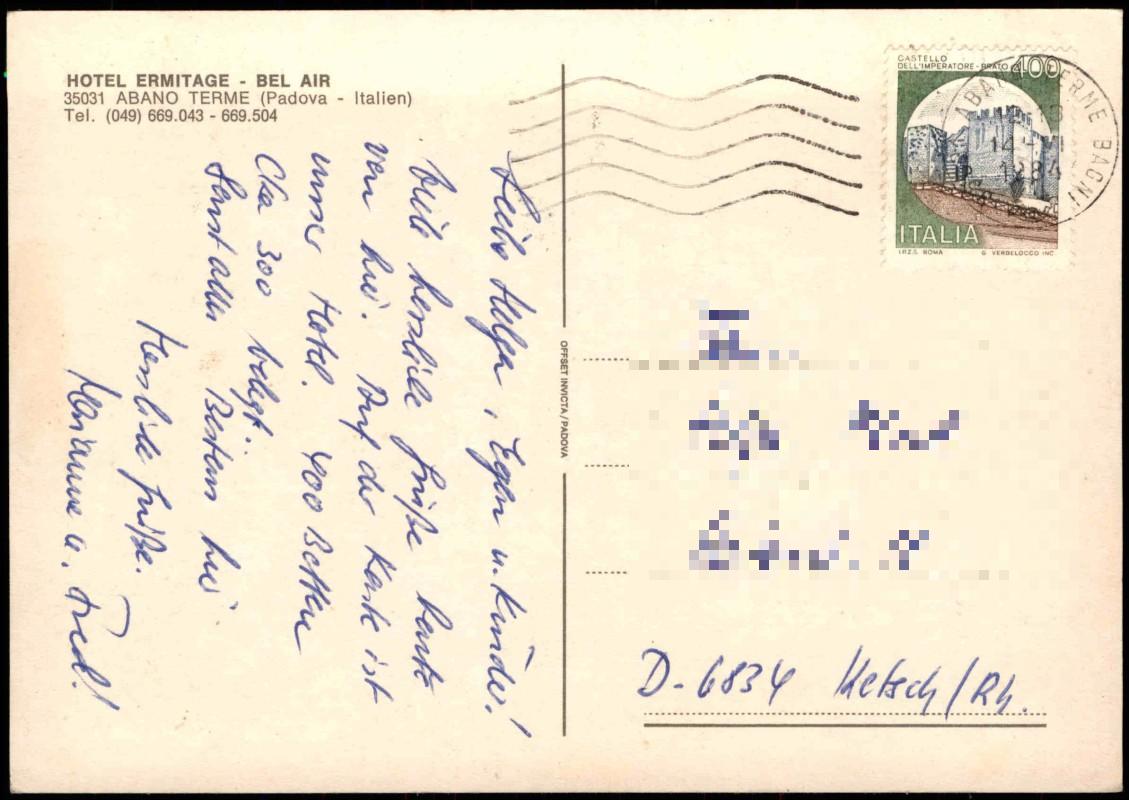 HOTEL ERMITAGE - BEL AIR
35031 ABANO TERME (Padova - Italien)
Tel. (049) 669.043 - 669.504
Liebe Helga, Egon u. Kinder!
Viele herzliche Grüße heute
von hier. Auf der Karte ist
unser Hotel. 400 Betten
Cka 300 belegt.
Sonst alles Bestens hier
Herzliche Grüße.
Marianne u. Fred!
OFFSET INVICTA/PADOVA
CASTELLO
DELL'IMPERATORE - PRATO
400
ITALIA
I.P.Z.S. ROMA G. VERDELOCCO INC.
ABANO TERME BAGNI
1984
D-6834 Ketsch/Rh.